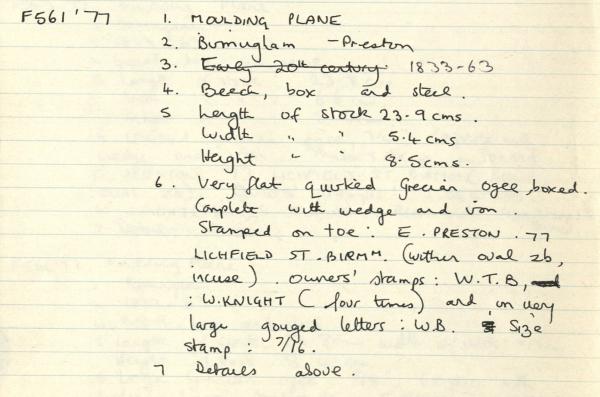 F561 '77 1. MOULDING PLANE
2. Birmingham - Preston
3. Early 20th century 1833-63
4. Beech, box and steel.
5 Length of stock 23.9 cms.
Width " " 5.4 cms
Height " " 8.5 cms.
6. Very flat quirked Grecian ogee, boxed.
Complete with wedge and iron.
Stamped on toe: E. PRESTON. 77
LICHFIELD ST. BIRMM. (within oval zb,
incuse). owners' stamps: W.T.B,
; W.KNIGHT (four times) and in very
large gouged letters: W.B. Size
stamp: 7/16.
7 Details above.